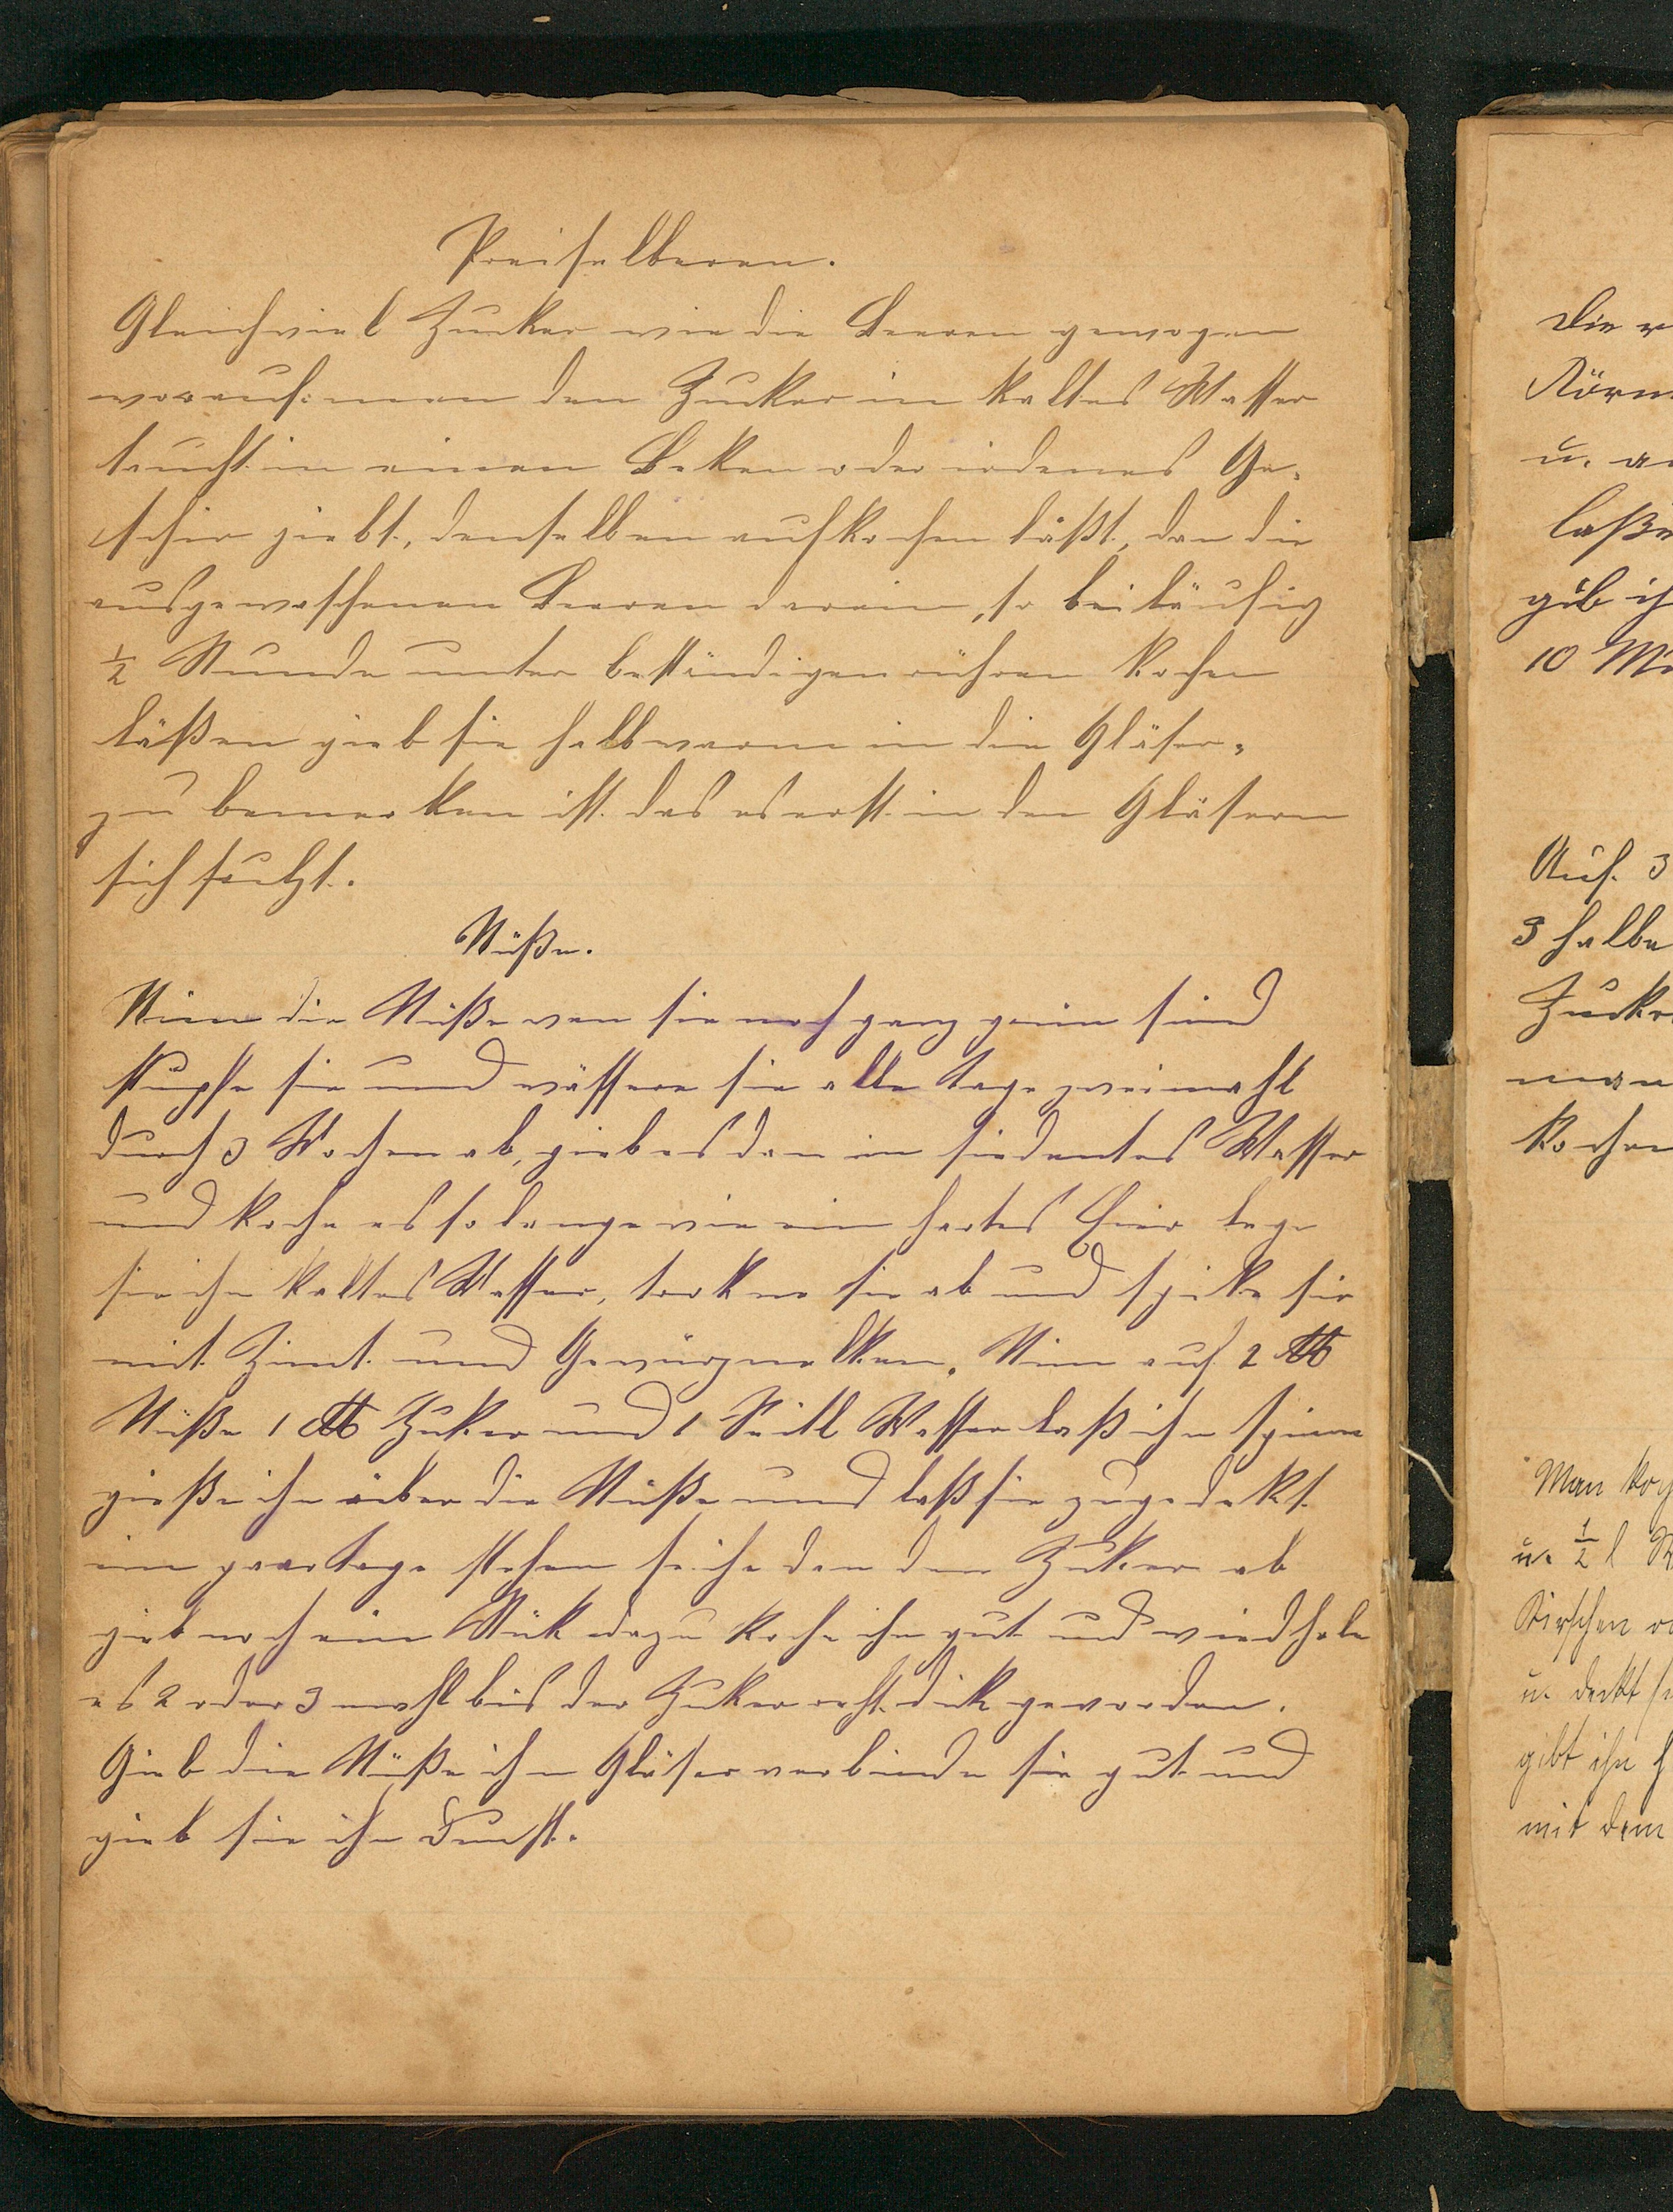 Preiselberen.
Gleichviel Zucker wie die Beeren gewogen
worauf man den Zucker in kaltes Wasser
taucht in einen Beken oder irdenes Ge-
schir giebt, denselben aufkochen läßt, dan die
ausgewaschenen Beeren darein, so beiläufig
½ Stunde unter beständigen rühren kochen
läßen gieb sie halbwarm in die Gläser,
zu bemerken ist das es erst in den Gläsern
sich sulzt.
Nüße.
Nim die Nüße wen sie noch ganz grün sind
stupfe sie und wässere sie alle Tage zweimahl
durch 3 Wochen ab, gieb es dan in siedentes Wasser
und koche es so lange wie ein hartes Eier lege
sie ihn kaltes Wasser, trokne sie ab und spike sie
mit Zimt und Gewürznelken. Nim auf 2 ℔
Nüße 1 ℔ Zuker und 1 Seitl Wasser laß ihn spinen
gieße ihn über die Nüße und laß sie zugedekt
ein paar Tage stehen seihe dan den Zuker ab
gieb noch ein Stük dazu koche ihn gut und wiedhole
es 2 oder 3 mahl bis der Zuker recht dik geworden.
Gieb die Nüße ihn Gläser verbinde sie gut und
gieb sie ihn Dunst.
Die
Körn
u.
laße
gib
10 Mi
Auf 3
3 halbe
Zucker
man
kochen
Man
u. ½ l
Kirschen
u. deckt
gibt ihn
mit dem